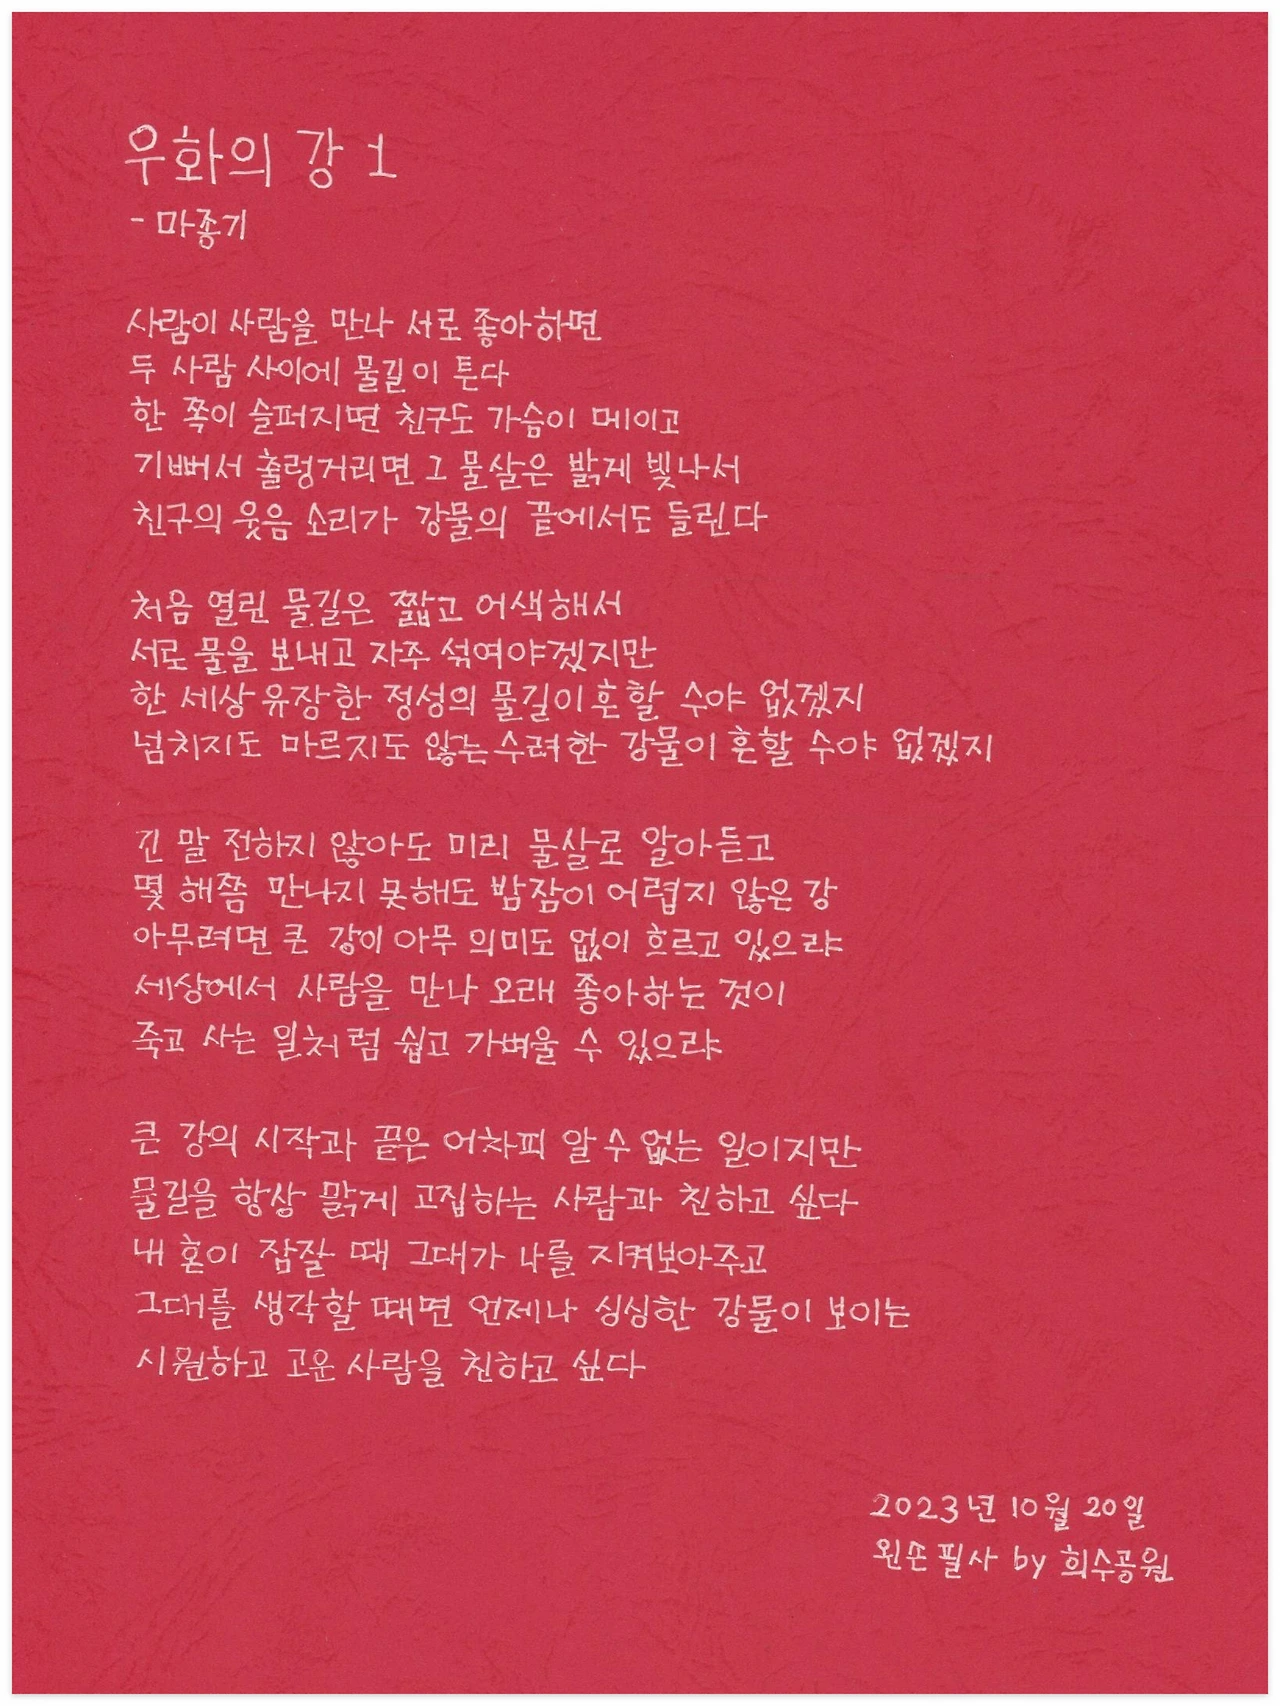 우화의 강 1
- 마종기
사람이 사람을 만나 서로 좋아하면
두 사람 사이에 물길이 튼다
한 쪽이 슬퍼지면 친구도 가슴이 메이고
기뻐서 출렁거리면 그 물살은 밝게 빛나서
친구의 웃음 소리가 강물의 끝에서도 들린다
처음 열린 물길은 짧고 어색해서
서로 물을 보내고 자주 섞여야겠지만
한 세상 유장한 정성의 물길이 흔할 수야 없겠지
넘치지도 마르지도 않는 수려한 강물이 흔할 수야 없겠지
긴 말 전하지 않아도 미리 물살로 알아듣고
몇 해쯤 만나지 못해도 밤잠이 어렵지 않은 강
아무려면 큰 강이 아무 의미도 없이 흐르고 있으랴
세상에서 사람을 만나 오래 좋아하는 것이
죽고 사는 일처럼 쉽고 가벼울 수 있으랴
큰 강의 시작과 끝은 어차피 알 수 없는 일이지만
물길을 항상 맑게 고집하는 사람과 친하고 싶다
내 혼이 잠잘 때 그대가 나를 지켜보아주고
그대를 생각할 때면 언제나 싱싱한 강물이 보이는
시원하고 고운 사람을 친하고 싶다
2023년 10월 20일
왼손필사 by 희수공원